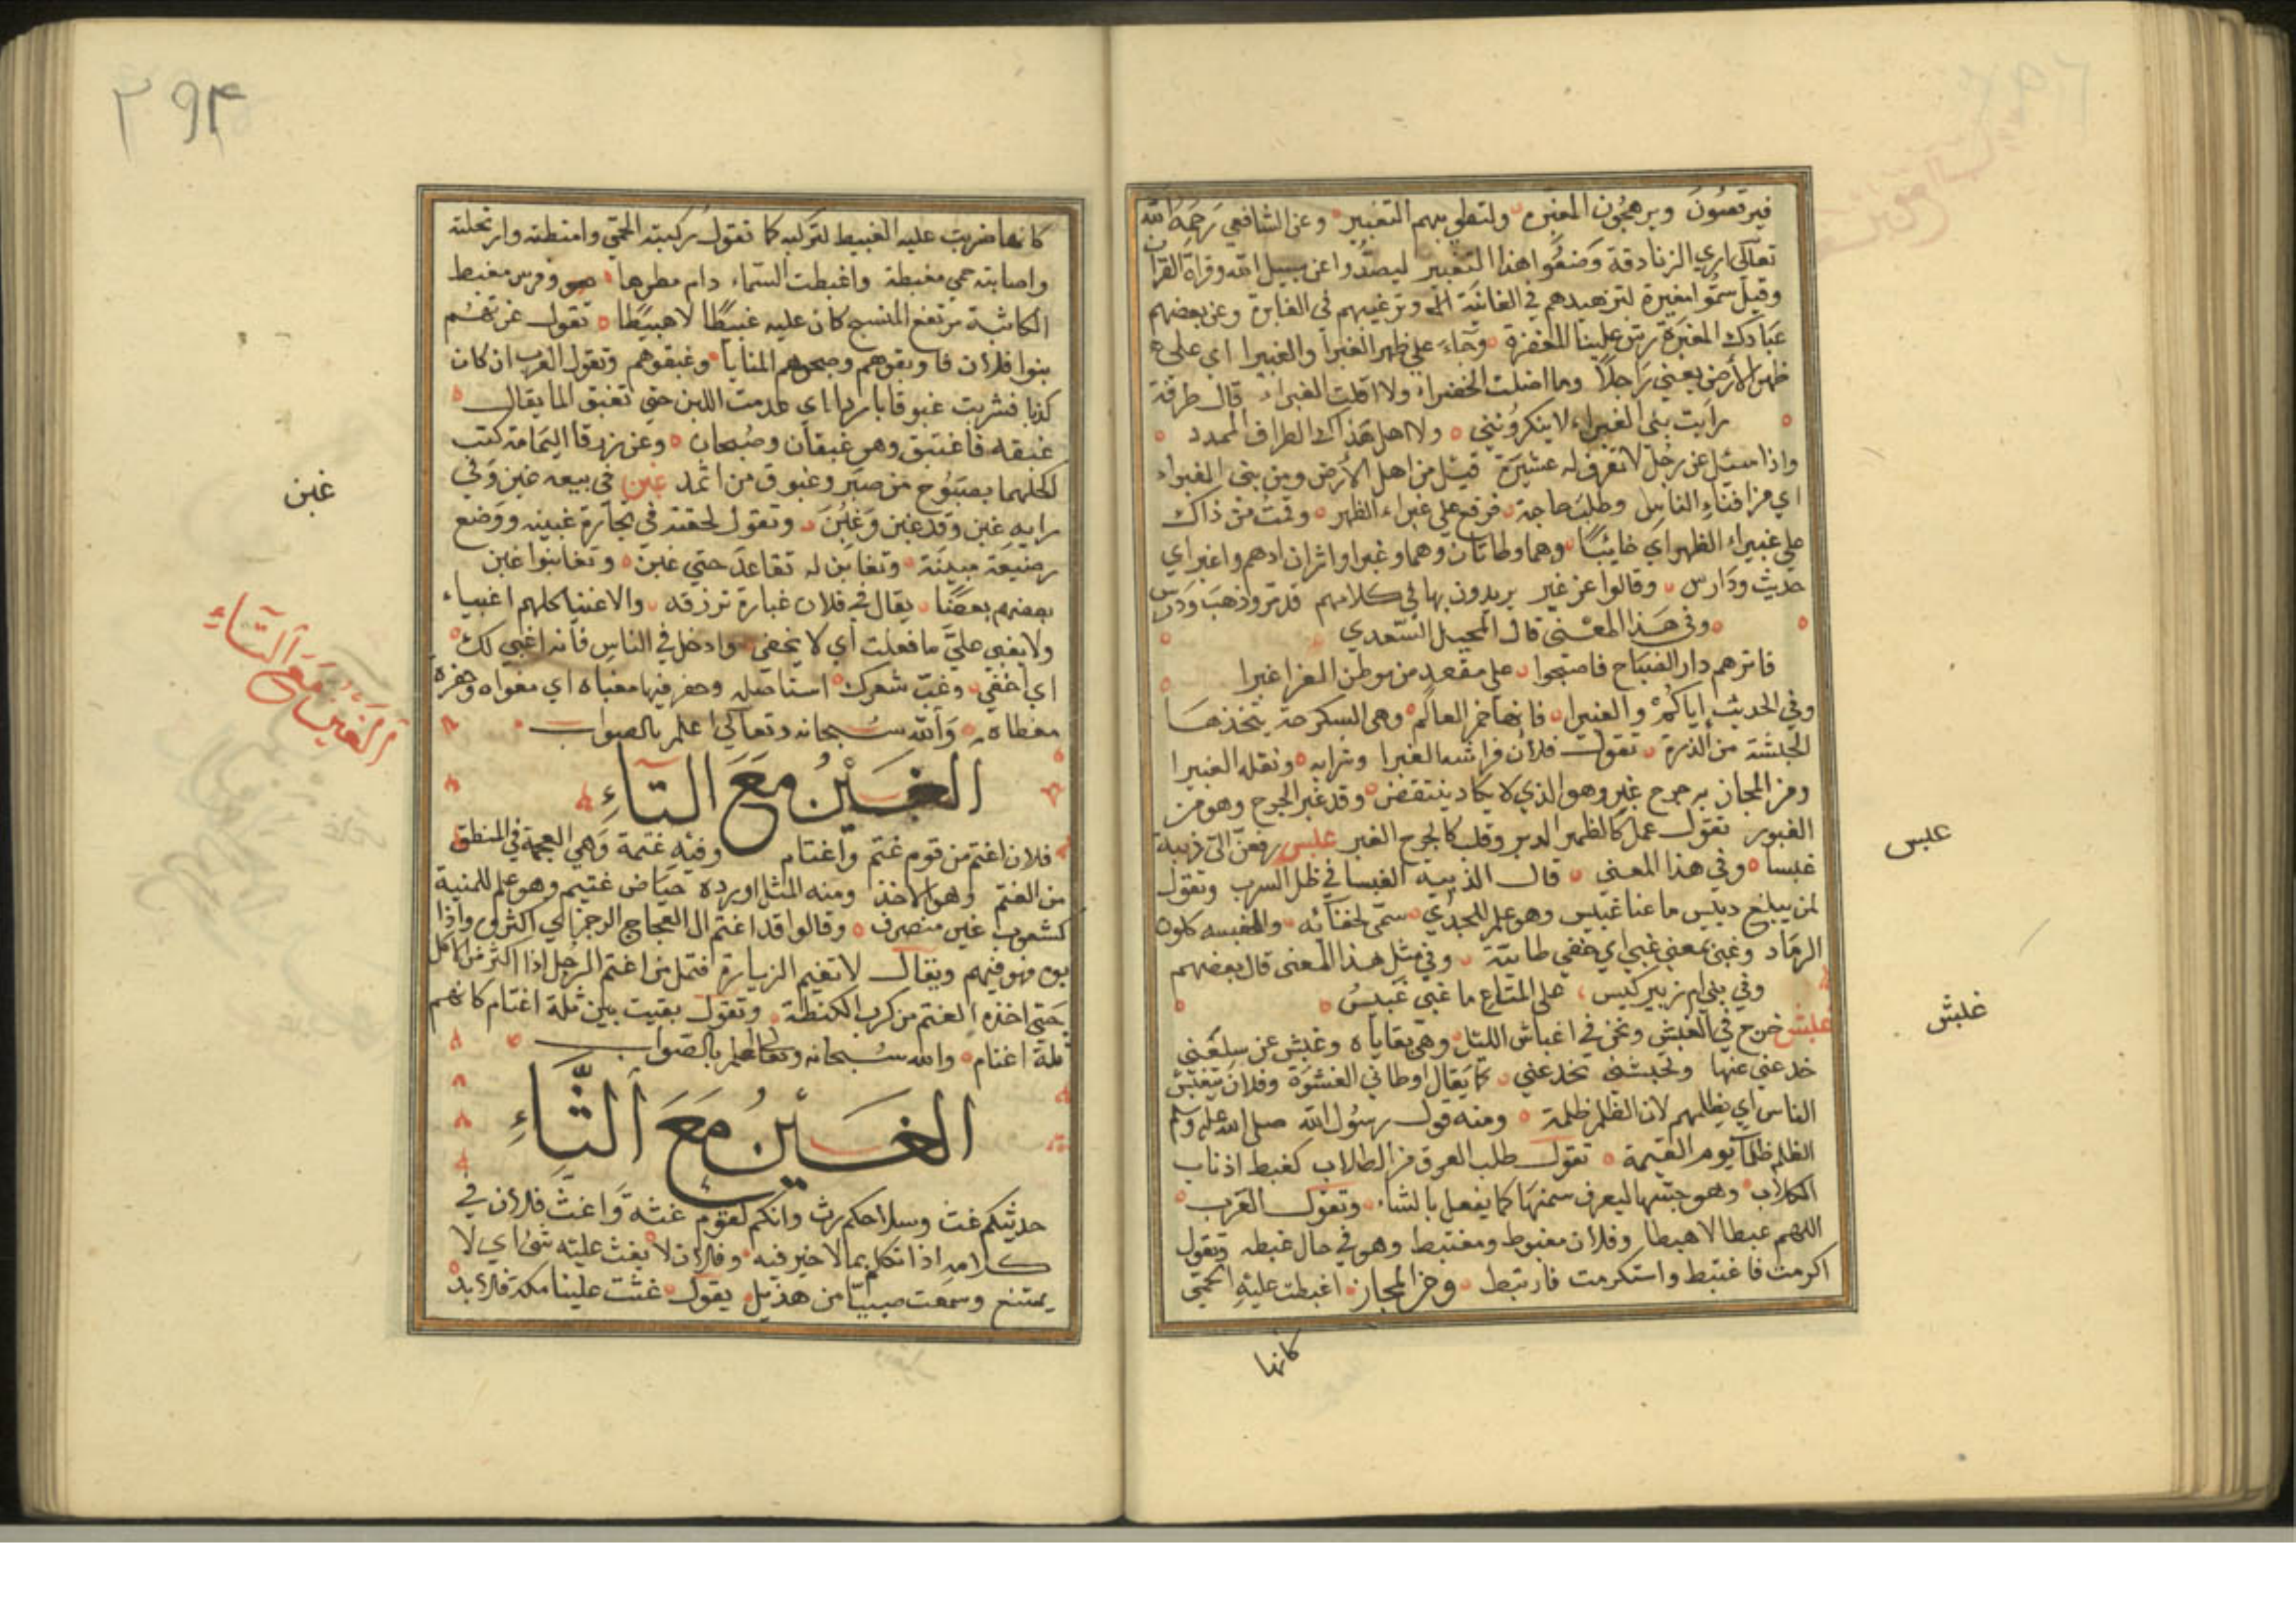 فيرقصون ويرهجون المغبرة ولتطريبهم التغبير وعن الشافعي رحمه الله
تعالى اري الزنادقة وضعوا هذا التغبير ليصدوا عن سبيل الله وقراة القرآن
وقيل سموا مغبرة لتزهيدهم في الفانية وترغيبهم في الغابرة وعن بعضهم
عبادك المغبرة رش علينا المغفرة وجاء على ظهر الغبرا والغبيرا اي على
ظهر الأرض يعني راجلاً وما اظلت الخضراء ولا اقلت الغبراء قال طرفة
رايت بني الغبراء لا ينكرونني ولا اهل هذاك الطراف الممدد
واذا سئل عن رجل لا تعرف له عشيرة قيل من اهل الأرض ومن بني الغبراء
اي من افناء الناس وطلب حاجة فرجع على غبراء الظهر وقمت من ذاك
على غبيراء الظهر اي خائبًا وهما وطاتان وهما وغبرا واثران ادهم واغبر اي
حديث ودارس وقالوا عز غبر يريدون بها في كلامهم قد تر وذهب ودرس
وفي هذا المعنى قال المخبل السعدي
فانزلهم دار الضباح فاصبحوا على مقعد من موطن العز اغبرا
وفي الحديث إياكم والغبيرا فانها خمر العالم وهي السكركة يتخذها
الحبشة من الذرة تقول فلان فراشه الغبرا وترابه ونقله الغبيرا
ومن المجاز به جرح غبر وهو الذي لا يكاد ينتقض وقد غبر الجرح وهو من
الغبور تقول عمل كالظهر الدبر وقلب كالجرح الغبر غلبس رفعن الى ذيبة
غبسا وفي هذا المعنى قال الذيبة الغبسا في ظل السرب وتقول
لن يبلغ دبيس ما عنا غبيس وهو علم للجدي سمى لخفائه والغبسه كلون
الرماد وغبى بمعنى غبي اي خفي طائية وفي مثل هذا المعنى قال بعضهم
وفي بني ام زبير كيس على المتاع ما غبى غبيس
غلبش خرج في الغبش ونحن في اغباش الليل وهي بقاياه وغبش عن سلعتى
خدعني عنها وتغبشنى تخدعني كما يقال اوطاني العشوة وفلان يتغبش
الناس اي يظلمهم لان الظلم ظلمة ومنه قول رسول الله صلى الله عليه وسلم
الظلم ظلمات يوم القيمة تقول طلب العرق من الطلاب كغبط اذناب
الكلاب وهو جسها ليعرف سمنها كما يفعل بالشاء وتقول العرب
اللهم غبطا لا هبطا وفلان مغبوط ومغتبط وهو في حال غبطه وتقول
اكرمت فاغتبط واستكرمت فارتبط ومن المجاز اغبطت عليه الحمى
كانها
غلبس
غلبش
٢٩٤
كانها ضربت عليه الغبيط لتركبه كما تقول ركبته الحمى وامتطته وارتحلته
واصابته حمى مغبطة واغبطت السماء دام مطرها وفرس مغبط
الكاثبة مرتفع المنسج كان عليه غبيطًا لا هبيطًا تقول غرتهم
بنوا فلان فاوبقوهم وصبحوهم المنايا وغبقوهم وتقول العرب ان كان
كذبا فشربت غبوقا باردا اي عدمت اللبن حتى تغبق الما يقال
غبقه فاغتبق وهو غبقان وصبحان وعن زرقا اليمامة كنت
اكحلهما بصبوح من صبر وغبوق من اثمد غبن في بيعه غبن وفي
رايه غبن وقد غبن وغبن وتقول لحقته في تجارة غبينه ووضع
وضيعة مبينة وتغابن له تقاعد حتى غبن وتغابنوا غبن
بعضهم بعضًا يقال في فلان غباوة ترزقه والاغنيا كلهم اغبياء
ولا يغبى على ما فعلت اي لا يخفى وادخل في الناس فانه اغبى لك
اي اخفى وغب شعرك استاصله وحفر فيها مغباه اي مغواه وحفرة
مغطاه والله سبحانه وتعالى اعلم بالصواب
الغين مع التاء
فلان اغتم من قوم غتم واغتام وفيه غتمة وهي العجمة في المنطق
من الغتم وهو الاخذ ومنه المثل اورده حياض غتيم وهو علم للمنية
كشعوب غير منصرف وقالوا قد اغتم ال العجاج الرجز اي اكثروا واذا
بوه فهو فيهم ويقال لا تغتم الزيارة فتمل من اغتم الرجل اذا اكثر من الاكل
حتى اخذه الغتم من كرب الكظة وتقول بقيت بين ثلة اغتام كانهم
ثلة اغنام والله سبحانه وتعالى اعلم بالصواب
الغين مع الثاء
حديثكم غث وسلاحكم رث وانكم لقوم غثة واغث فلان في
كلامه اذا تكلم بما لا خير فيه وفلان لا يغث عليه شئ اي لا
يمتنع وسمعت صبيًا من هذيل يقول غثت علينا مكة فلا بد
غبن
الغين مع التاء